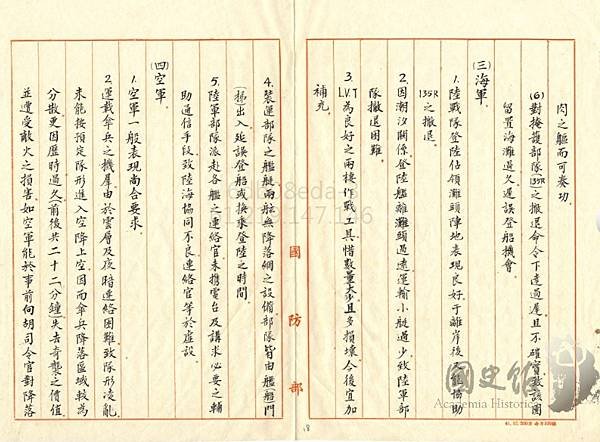 閃之軀而可奏功.
(6)對掩護部隊(135R)之撤退命令下達過遲且不確實致該團
留置海灘過久遲誤登船機會
(三)海軍.
1.陸戰隊登陸佔領灘頭陣地表現良好于離岸後又能協助
135R之撤退.
2.因潮汐關係登陸艦離灘頭過遠運輸小艇過少致陸軍部
隊撤退困難
3.L.V.T為良好之兩棲作戰工具惜數量少且多損壞今後宜加
補充.
18
國防部
4.裝運部隊之艦艇兩舷無降落網之設備部隊皆由艦(艇)門
(梯)出入延誤登船或換乘登陸之時間
5.陸軍部隊派赴各艦之連絡官未攜電台及講求必要之輔
助通信手段致陸海協同不良連絡官等於虛設
(四)空軍.
1.空軍一般表現尚合要求.
2.運載傘兵之機羣由於雲層及夜暗連絡困難致隊形凌亂
未能按預定隊形進入空降上空因而傘兵降落區域較為
分散更因歷時過久(前後共二十二分鐘)失去奇襲之價值
並遭受敵火之損害如空軍能於事前向胡司令官對降落
國史館
Academia Historica